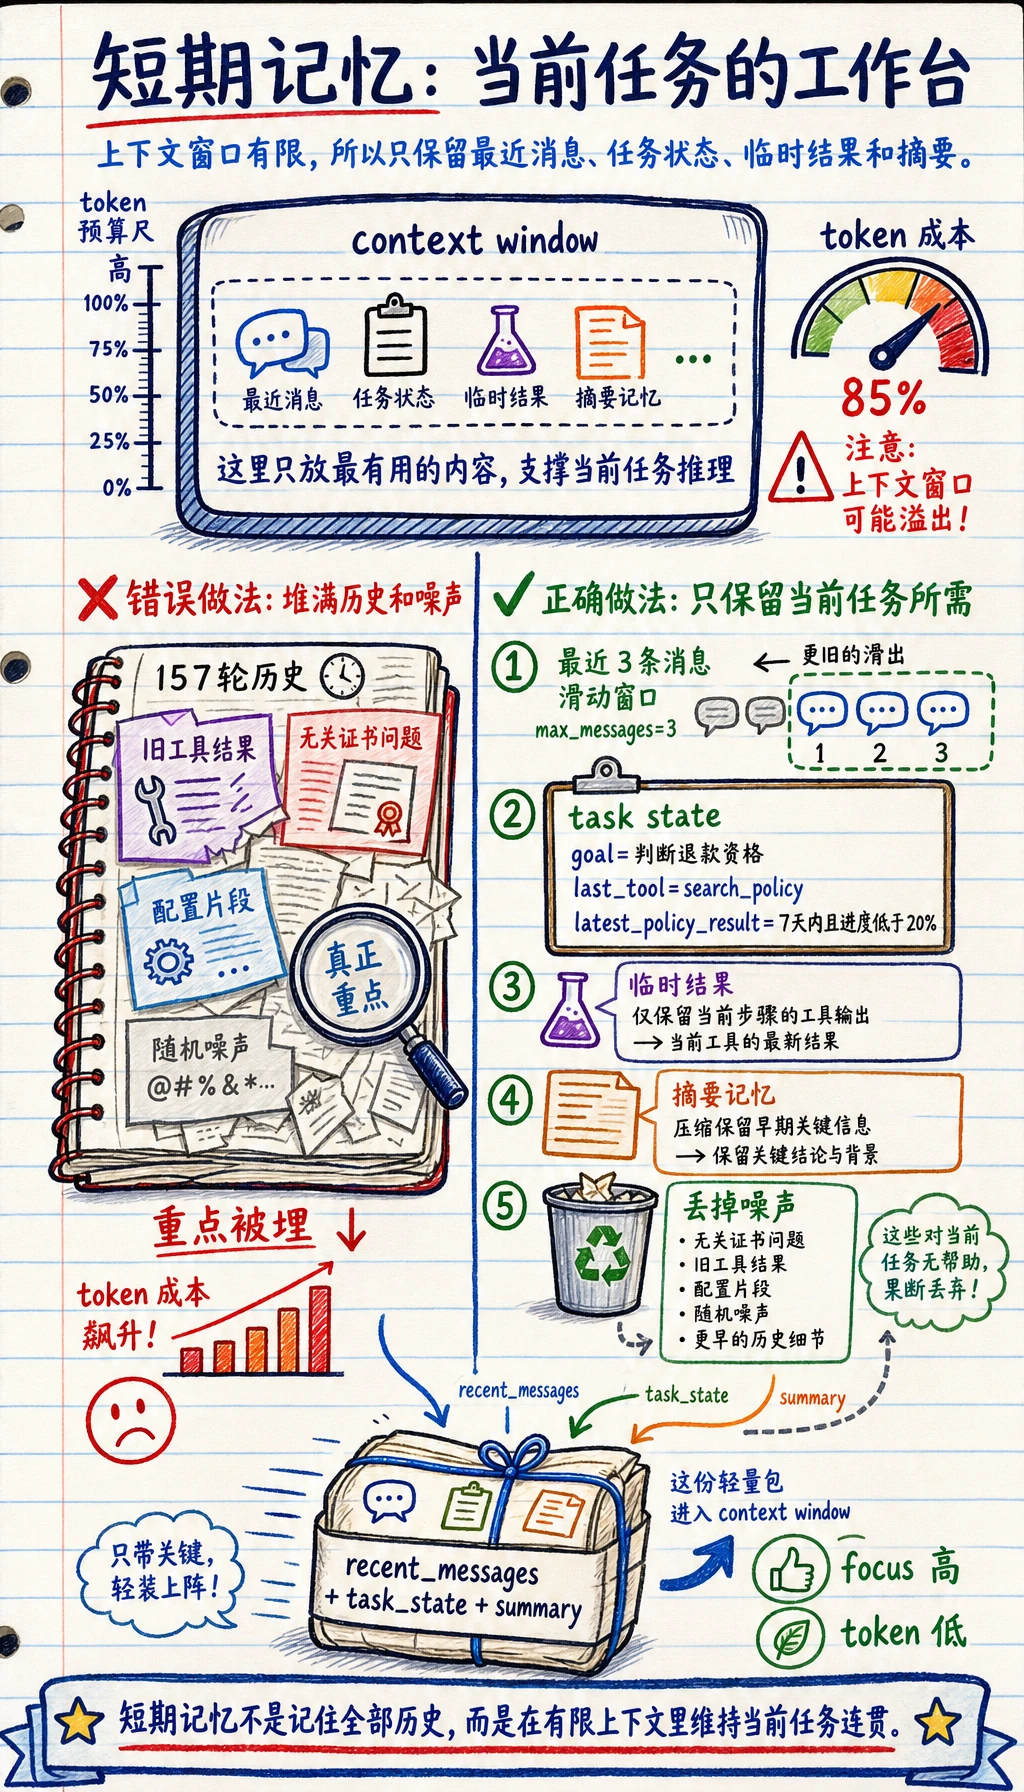 短期记忆：当前任务的工作台
上下文窗口有限，所以只保留最近消息、任务状态、临时结果和摘要。
token
预算尺
高
100%
75%
50%
25%
0%
context window
最近消息
任务状态
临时结果
摘要记忆
...
这里只放最有用的内容，支撑当前任务推理
token 成本
85%
注意：
上下文窗口
可能溢出！
错误做法：堆满历史和噪声
157轮历史
旧工具结果
无关证书问题
配置片段
...
真正
重点
随机噪声
@#%&*...
重点被埋
token 成本
飙升！
正确做法：只保留当前任务所需
①
最近 3 条消息
滑动窗口
max_messages=3
← 更旧的滑出
1
2
3
②
task state
goal = 判断退款资格
last_tool = search_policy
latest_policy_result = 7天内且进度低于20%
③
临时结果
仅保留当前步骤的工具输出
→ 当前工具的最新结果
④
摘要记忆
压缩保留早期关键信息
→ 保留关键结论与背景
⑤
丢掉噪声
• 无关证书问题
• 旧工具结果
• 配置片段
• 随机噪声
• 更早的历史细节
这些对当前
任务无帮助，
果断丢弃！
recent_messages
task_state
summary
只带关键，
轻装上阵！
recent_messages
+ task_state + summary
这份轻量包
进入 context window
focus 高
token 低
短期记忆不是记住全部历史，而是在有限上下文里维持当前任务连贯。